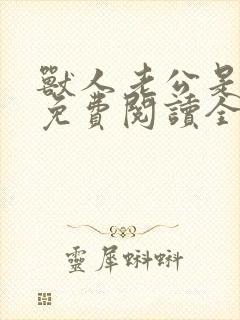 獸人老公是
免費閱讀全
靈犀蝌蝌